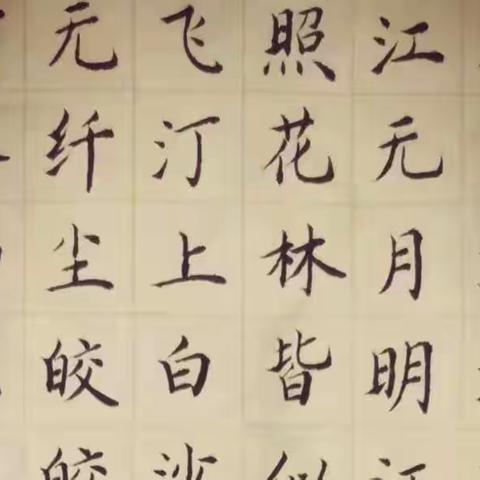 江无月明江
照花林皆似
飞汀上白沙
无纤尘皎皎